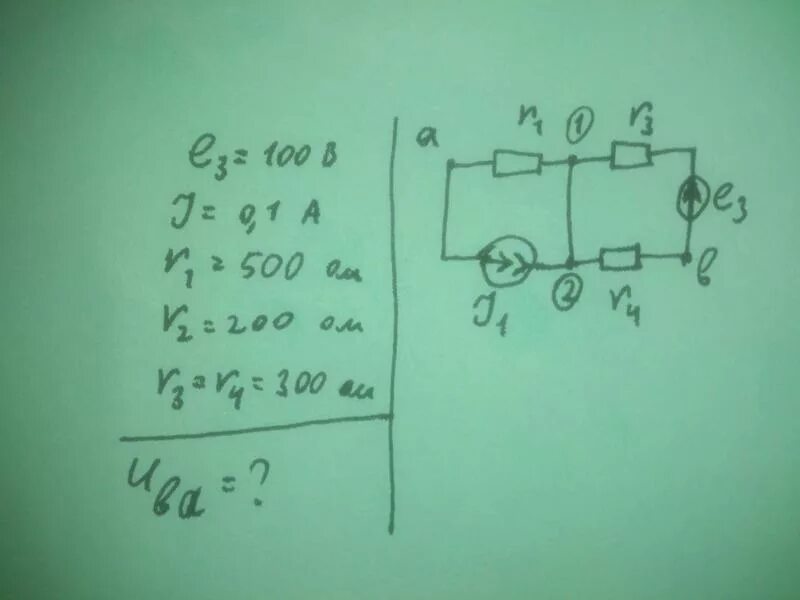 e₃ = 100 В
J = 0,1 А
r₁ = 500 ом
r₂ = 200 ом
r₃ = r₄ = 300 ом
Uва = ?
а
r₁
①
r₃
e₃
в
r₄
②
J₁